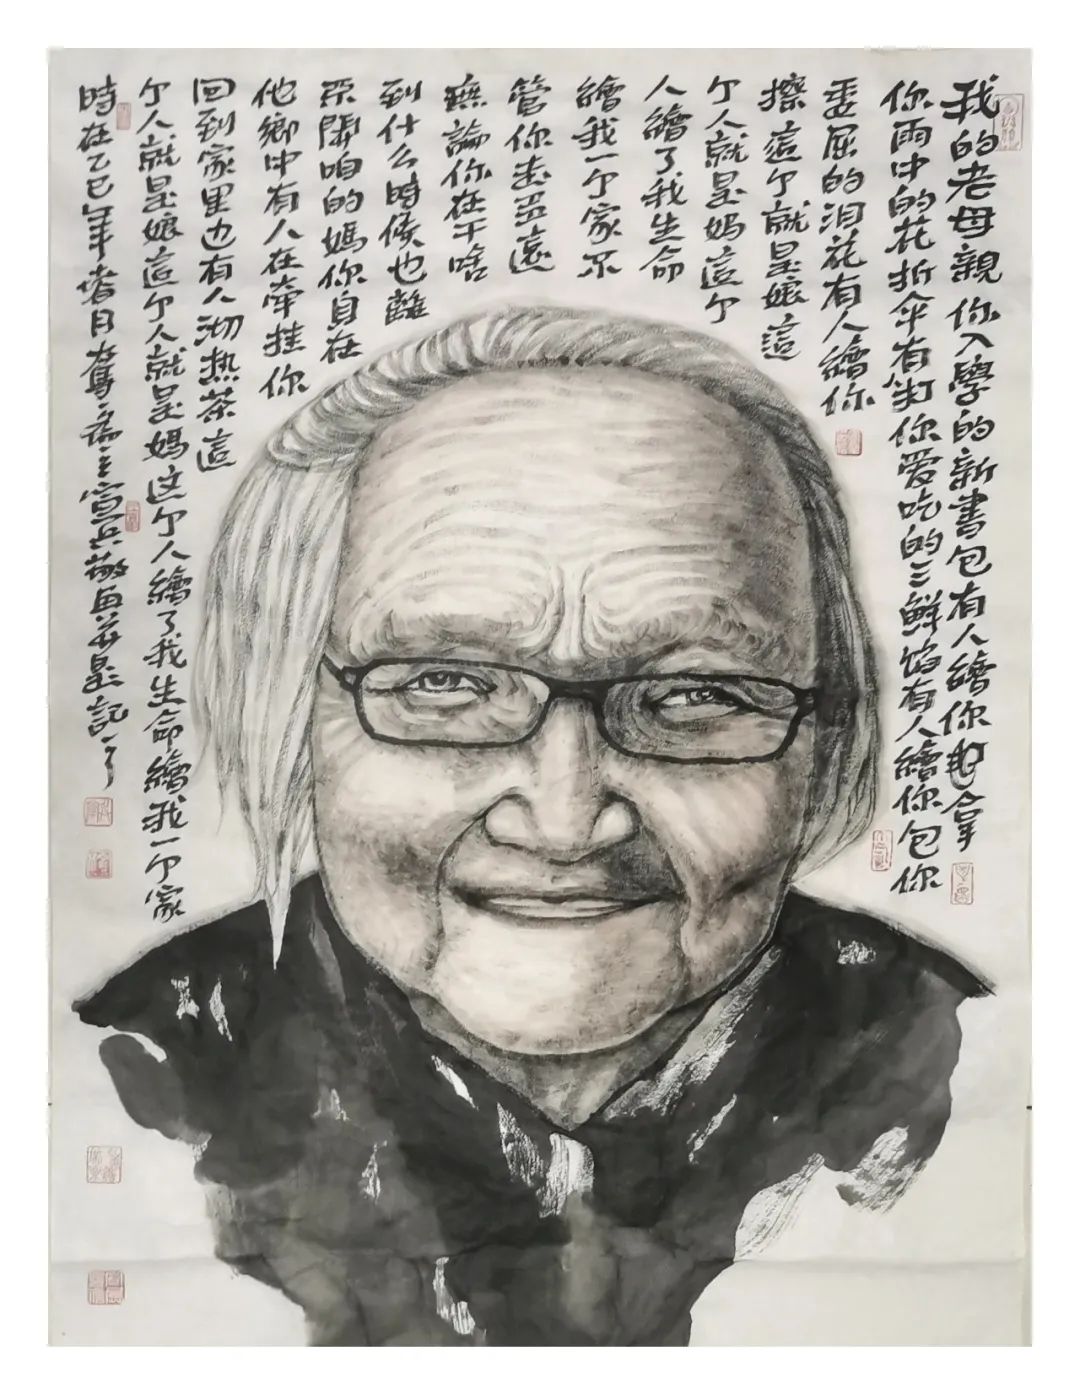 我的老母親你入學的新書包有人繪你拿
你雨中的花折伞有你爱吃的三鮮馅有人繪你包你
委屈的泪花有人繪你
擦這个就是娘這
个人就是媽這个
人繪了我生命
繪我一个家不
管你走多遠
無論你在干啥
到什么時候也離
不開咱的媽你身在
他鄉中有人在牽挂你
回到家里也有人沏热茶這
个人就是娘這个人就是媽这个人繪了我生命繪我一个家
時在乙巳年月主兵敬画并記